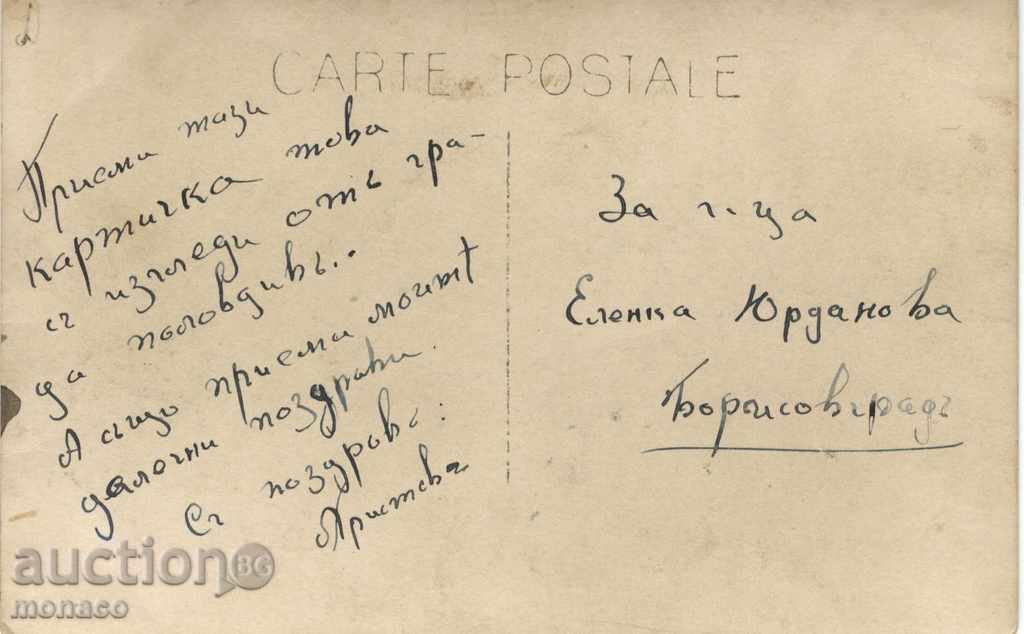 CARTE POSTALE
Приеми тази
картичка това
съ изгледи отъ гра-
да пловдивъ..
А също приеми моитѣ
далечни поздрави.
Съ поздровъ:
Христова
За г-ца
Еленка Юрданова
Борисовградъ
auction BG
monaco